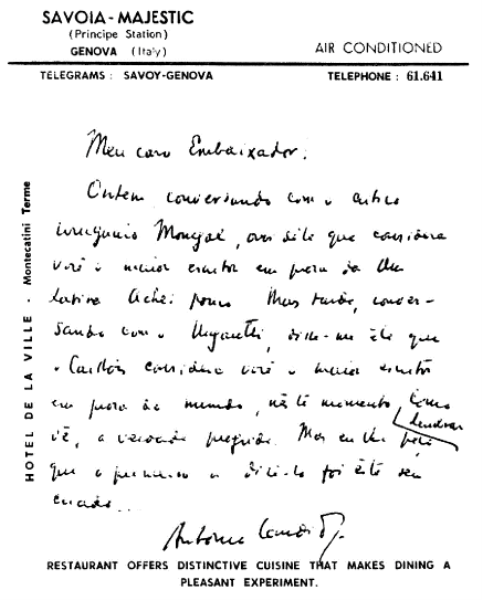 SAVOIA - MAJESTIC
(Principe Station)
GENOVA (Italy)
AIR CONDITIONED
TELEGRAMS : SAVOY-GENOVA
TELEPHONE : 61.641
HOTEL DE LA VILLE - Montecatini Terme
Meu caro Embaixador:
Ontem, conversando com o crítico
uruguaio Monegal, ouvi dêle que considera
você o maior escritor em prosa da Am.
Latina. Achei pouco. Mas tarde, conver-
sando com o Ungaretti, disse-me êle que
o Caillois considera você o maior escritor
em prosa do mundo, momento. Como
vê, a verdade progride. Mas eu lhe peço
lembrar
que o primeiro a dizê-lo foi êste seu
criado...
Antonio Candido
RESTAURANT OFFERS DISTINCTIVE CUISINE THAT MAKES DINING A
PLEASANT EXPERIMENT.